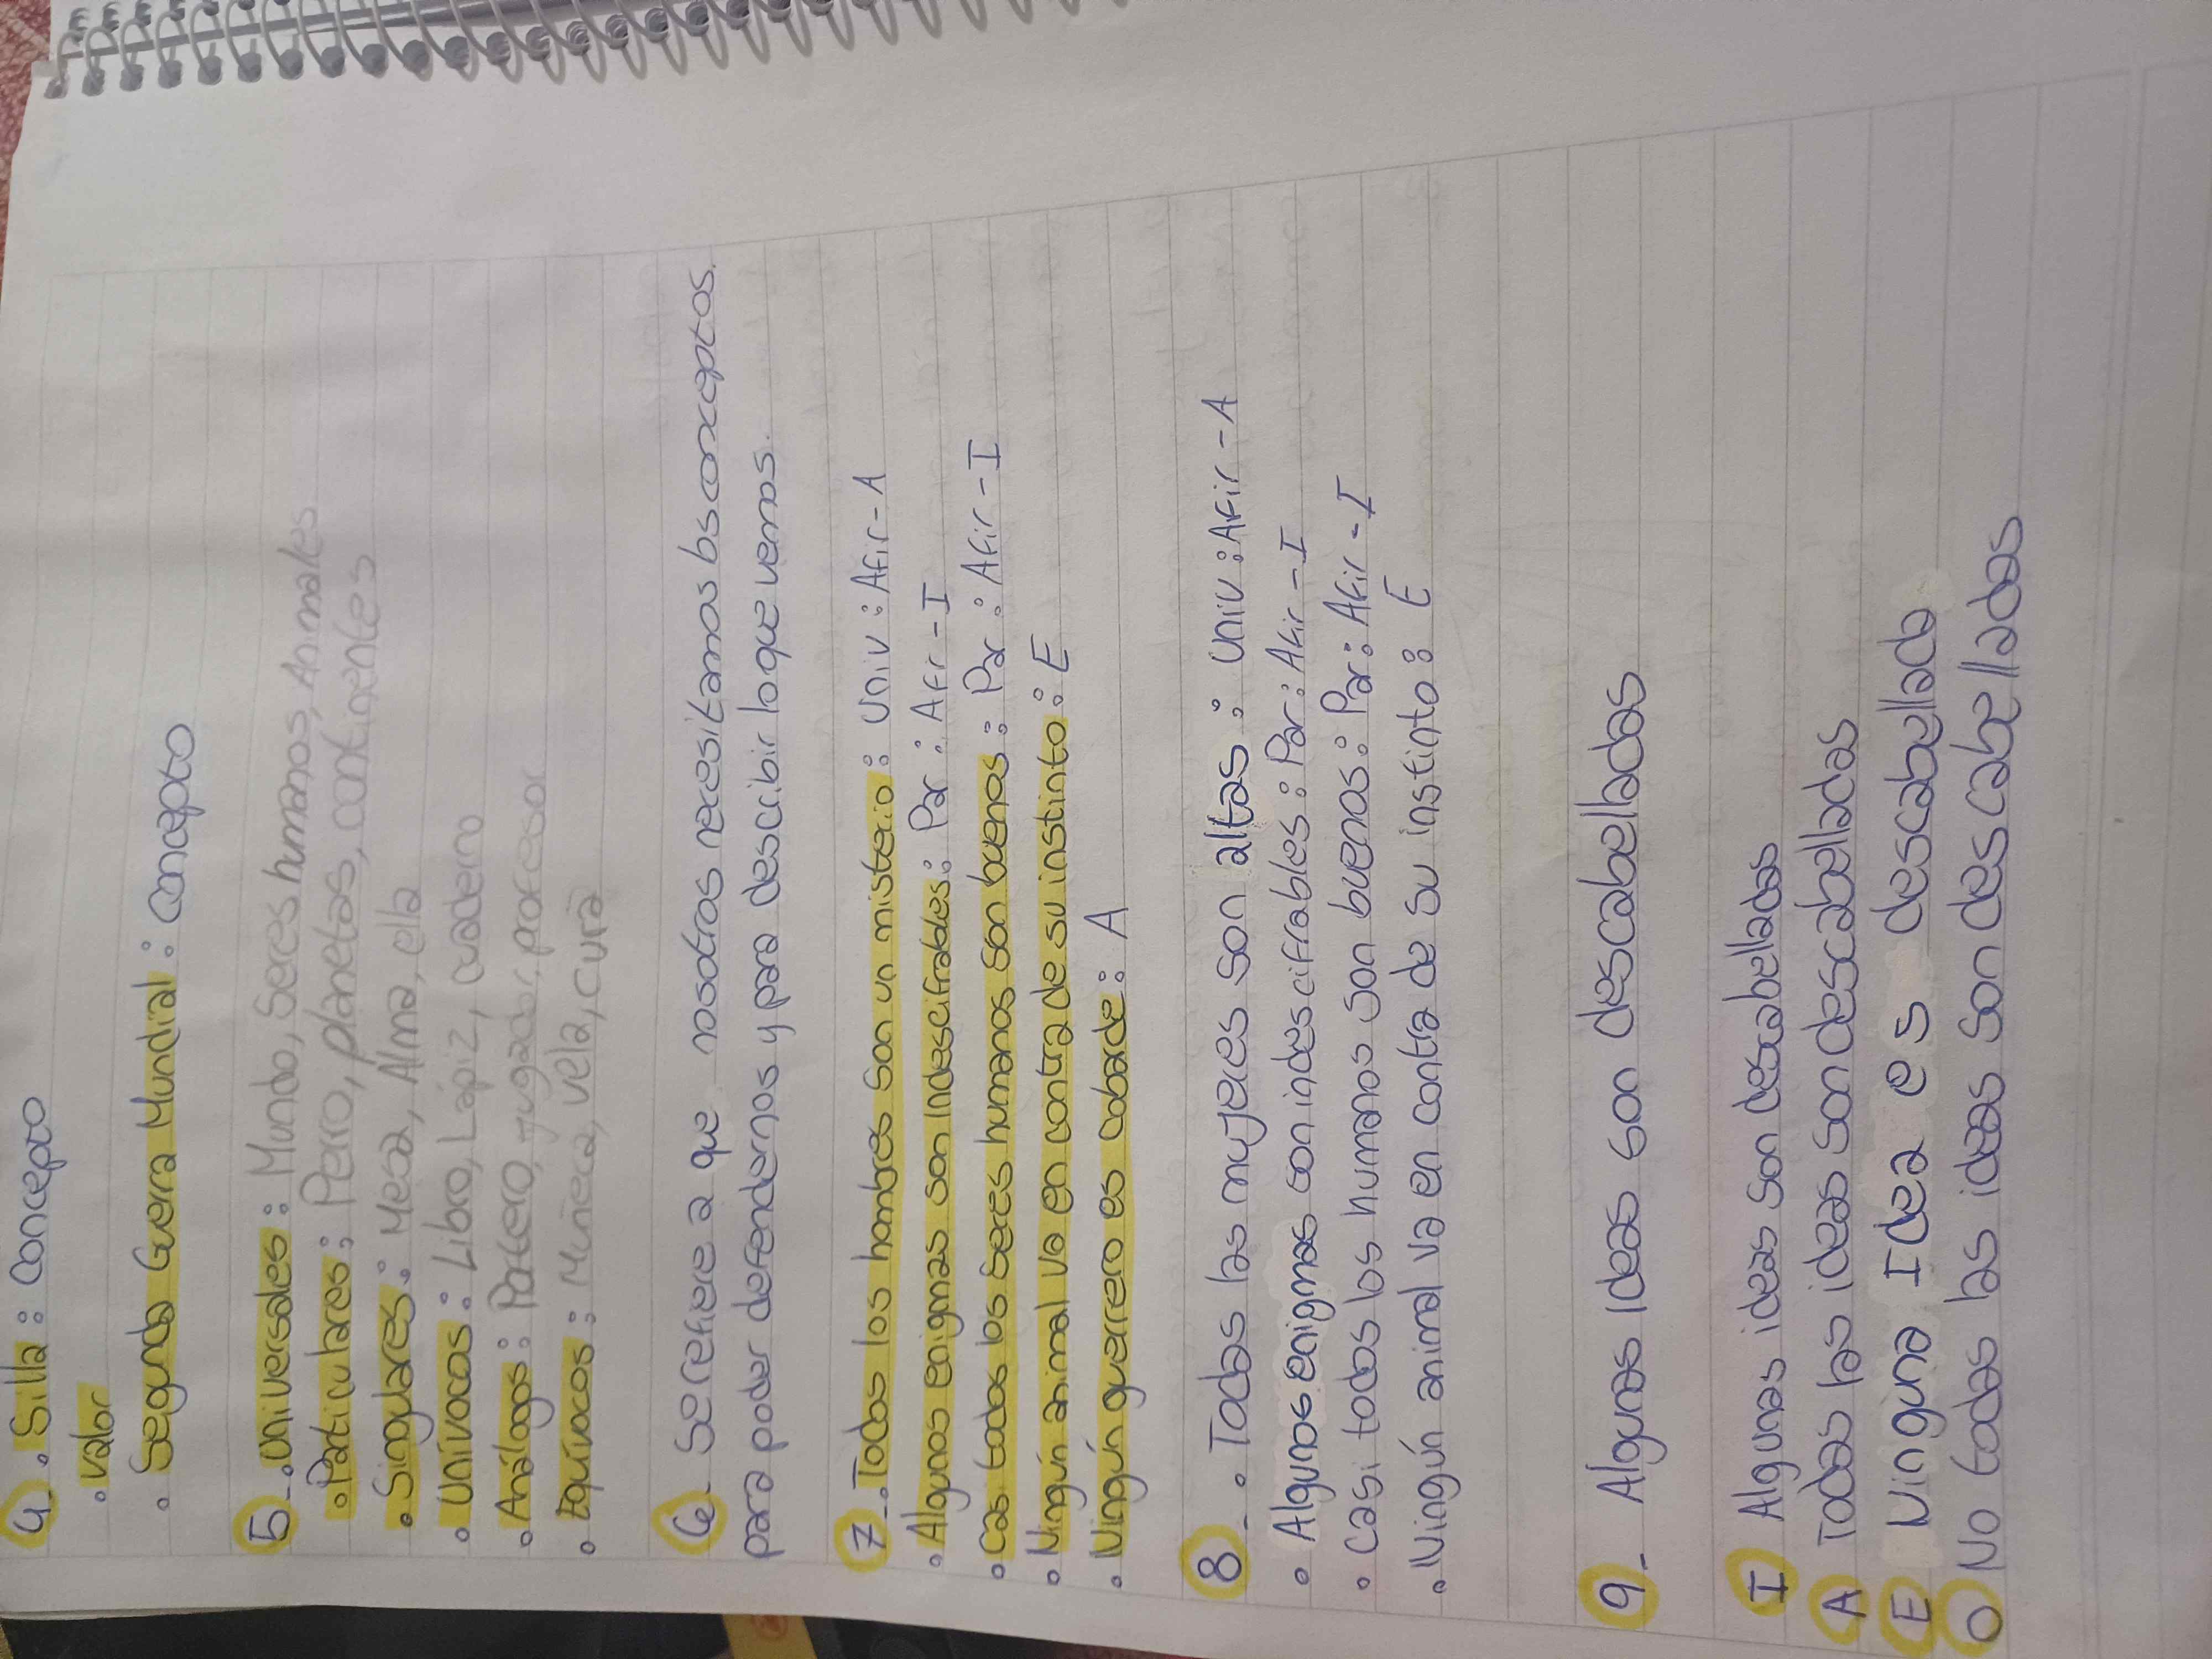 4 . Silla : Concepto
. valor
. Segunda Guerra Mundial : Concepto
5- . Universales : Mundo, Seres humanos, Animales
. Particulares : Perro, planetas, continentes
. Singulares : Mesa, Alma, ella
. Unívocos : Libro, Lápiz, cuaderno
. Análogos : Portero, jugador, profesor
. Equívocos : Muñeca, Vela, cura
6- Se refiere a que nosotros necesitamos los conceptos
para poder defendernos y para describir lo que vemos.
7- . Todos los hombres son un misterio : Univ : Afir - A
. Algunos enigmas son Indescifrables : Par : Afir - I
. Casi todos los seres humanos son buenos : Par : Afir - I
. Ningún animal va en contra de su instinto : E
. Ningún guerrero es cobarde : A
8- . Todas las mujeres son altas : Univ : Afir - A
. Algunos enigmas son indescifrables : Par : Afir - I
. Casi todos los humanos son buenos : Par : Afir - I
. Ningún animal va en contra de su instinto : E
9- Algunas Ideas son descabelladas
I Algunas ideas son descabelladas
A Todas las ideas son descabelladas
E Ninguna Idea es descabellada
O No todas las ideas son descabelladas